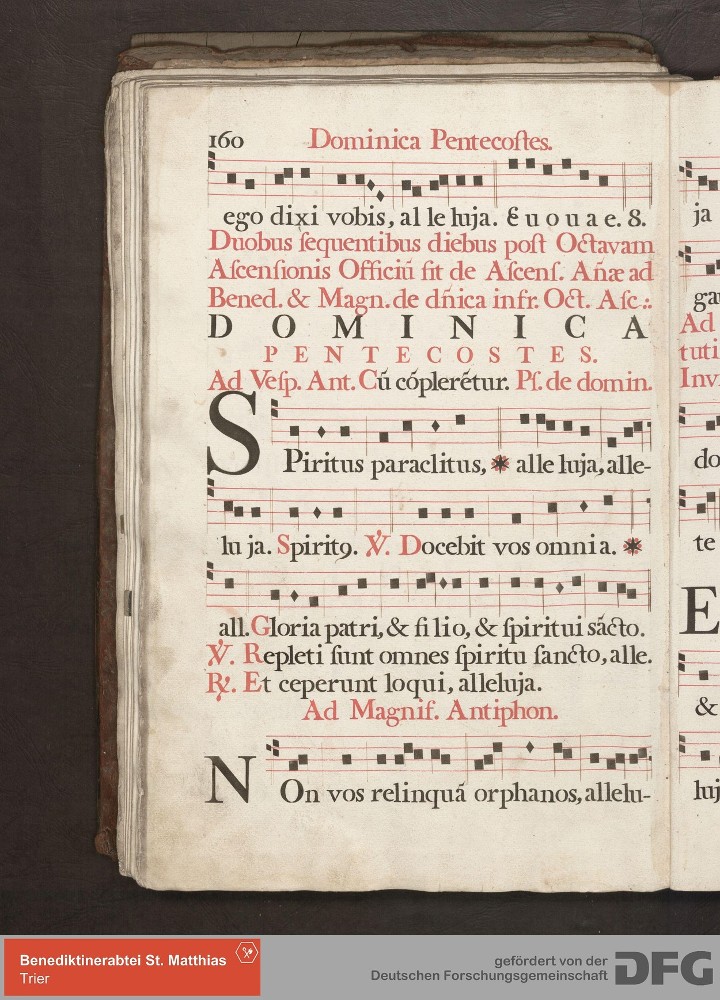 160 Dominica Pentecoſtes.
ego dixi vobis, al le luja. E u o u a e. 8.
Duobus ſequentibus diebus poſt Octavam
Aſcenſionis Officiũ fit de Aſcenſ. Añæ ad
Bened. & Magn. de dñica infr. Oct. Aſc.:
DOMINICA
PENTECOSTES.
Ad Veſp. Ant. Cũ cópleréтur. Pſ. de domin.
SPiritus paraclitus, * alle luja, alle-
lu ja. Spirit9. ℣. Docebit vos omnia. *
all. Gloria patri, & fi lio, & ſpiritui sácto.
℣. Repleti ſunt omnes ſpiritu ſancto, alle.
℟. Et ceperunt loqui, alleluja.
Ad Magnif. Antiphon.
NOn vos relinquá orphanos, allelu-
ja
gau
Ad
tuti
Inv
do
te
E
&
luj
Benediktinerabtei St. Matthias
Trier
gefördert von der
Deutschen Forschungsgemeinschaft
DFG